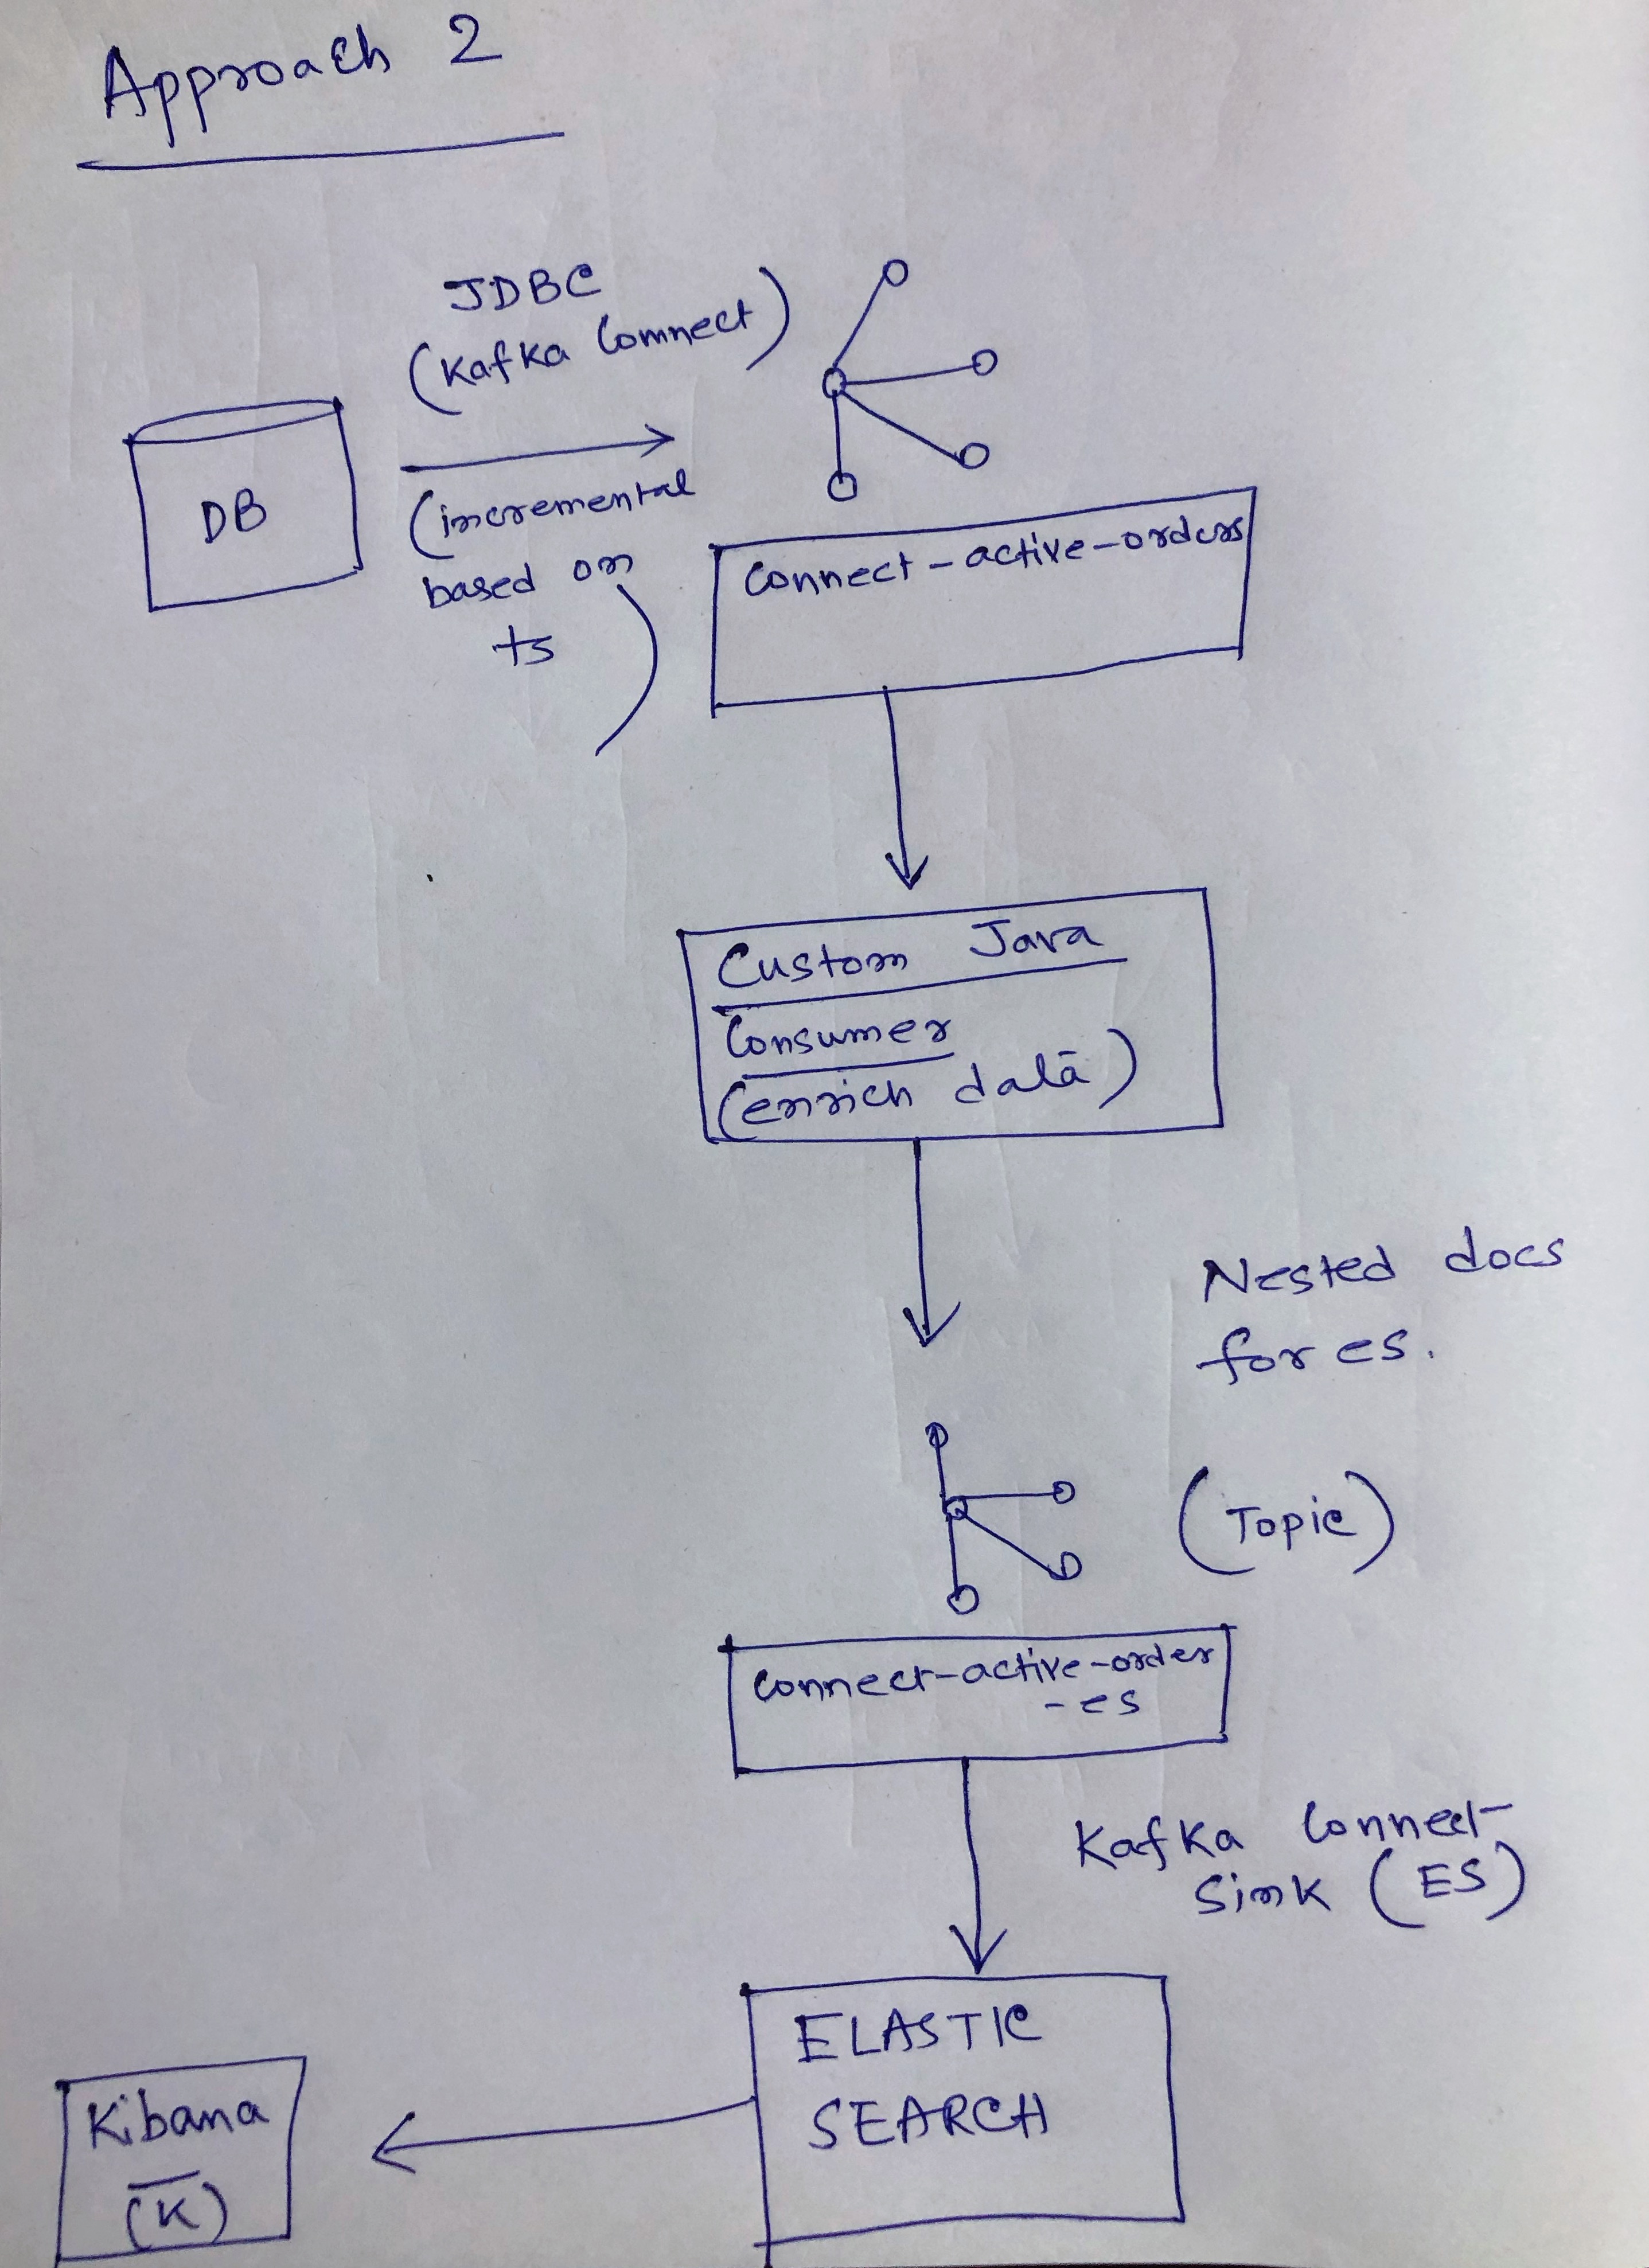 Approach 2
JDBC
(Kafka Connect)
DB
(incremental
based on
ts)
connect-active-orders
Custom Java
Consumer
(enrich data)
Nested docs
for es.
(Topic)
connect-active-order
-es
Kafka Connect
Sink (ES)
ELASTIC
SEARCH
Kibana
(K)